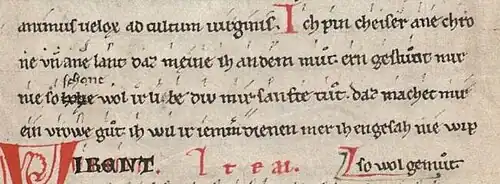 animus uelox ad cultum uirginis. Ich pin cheiser ane chro
ne vn̄ ane lant daz meine ih andem můt. ern gestůnt mir
schone
nie so wol ir libe diu mir sanfte tůt. daz machet mir
ein vrowe gůt ih wil ir iemm dienen mer ih engesah nie wip
VIRENT Item. so wol gemůt